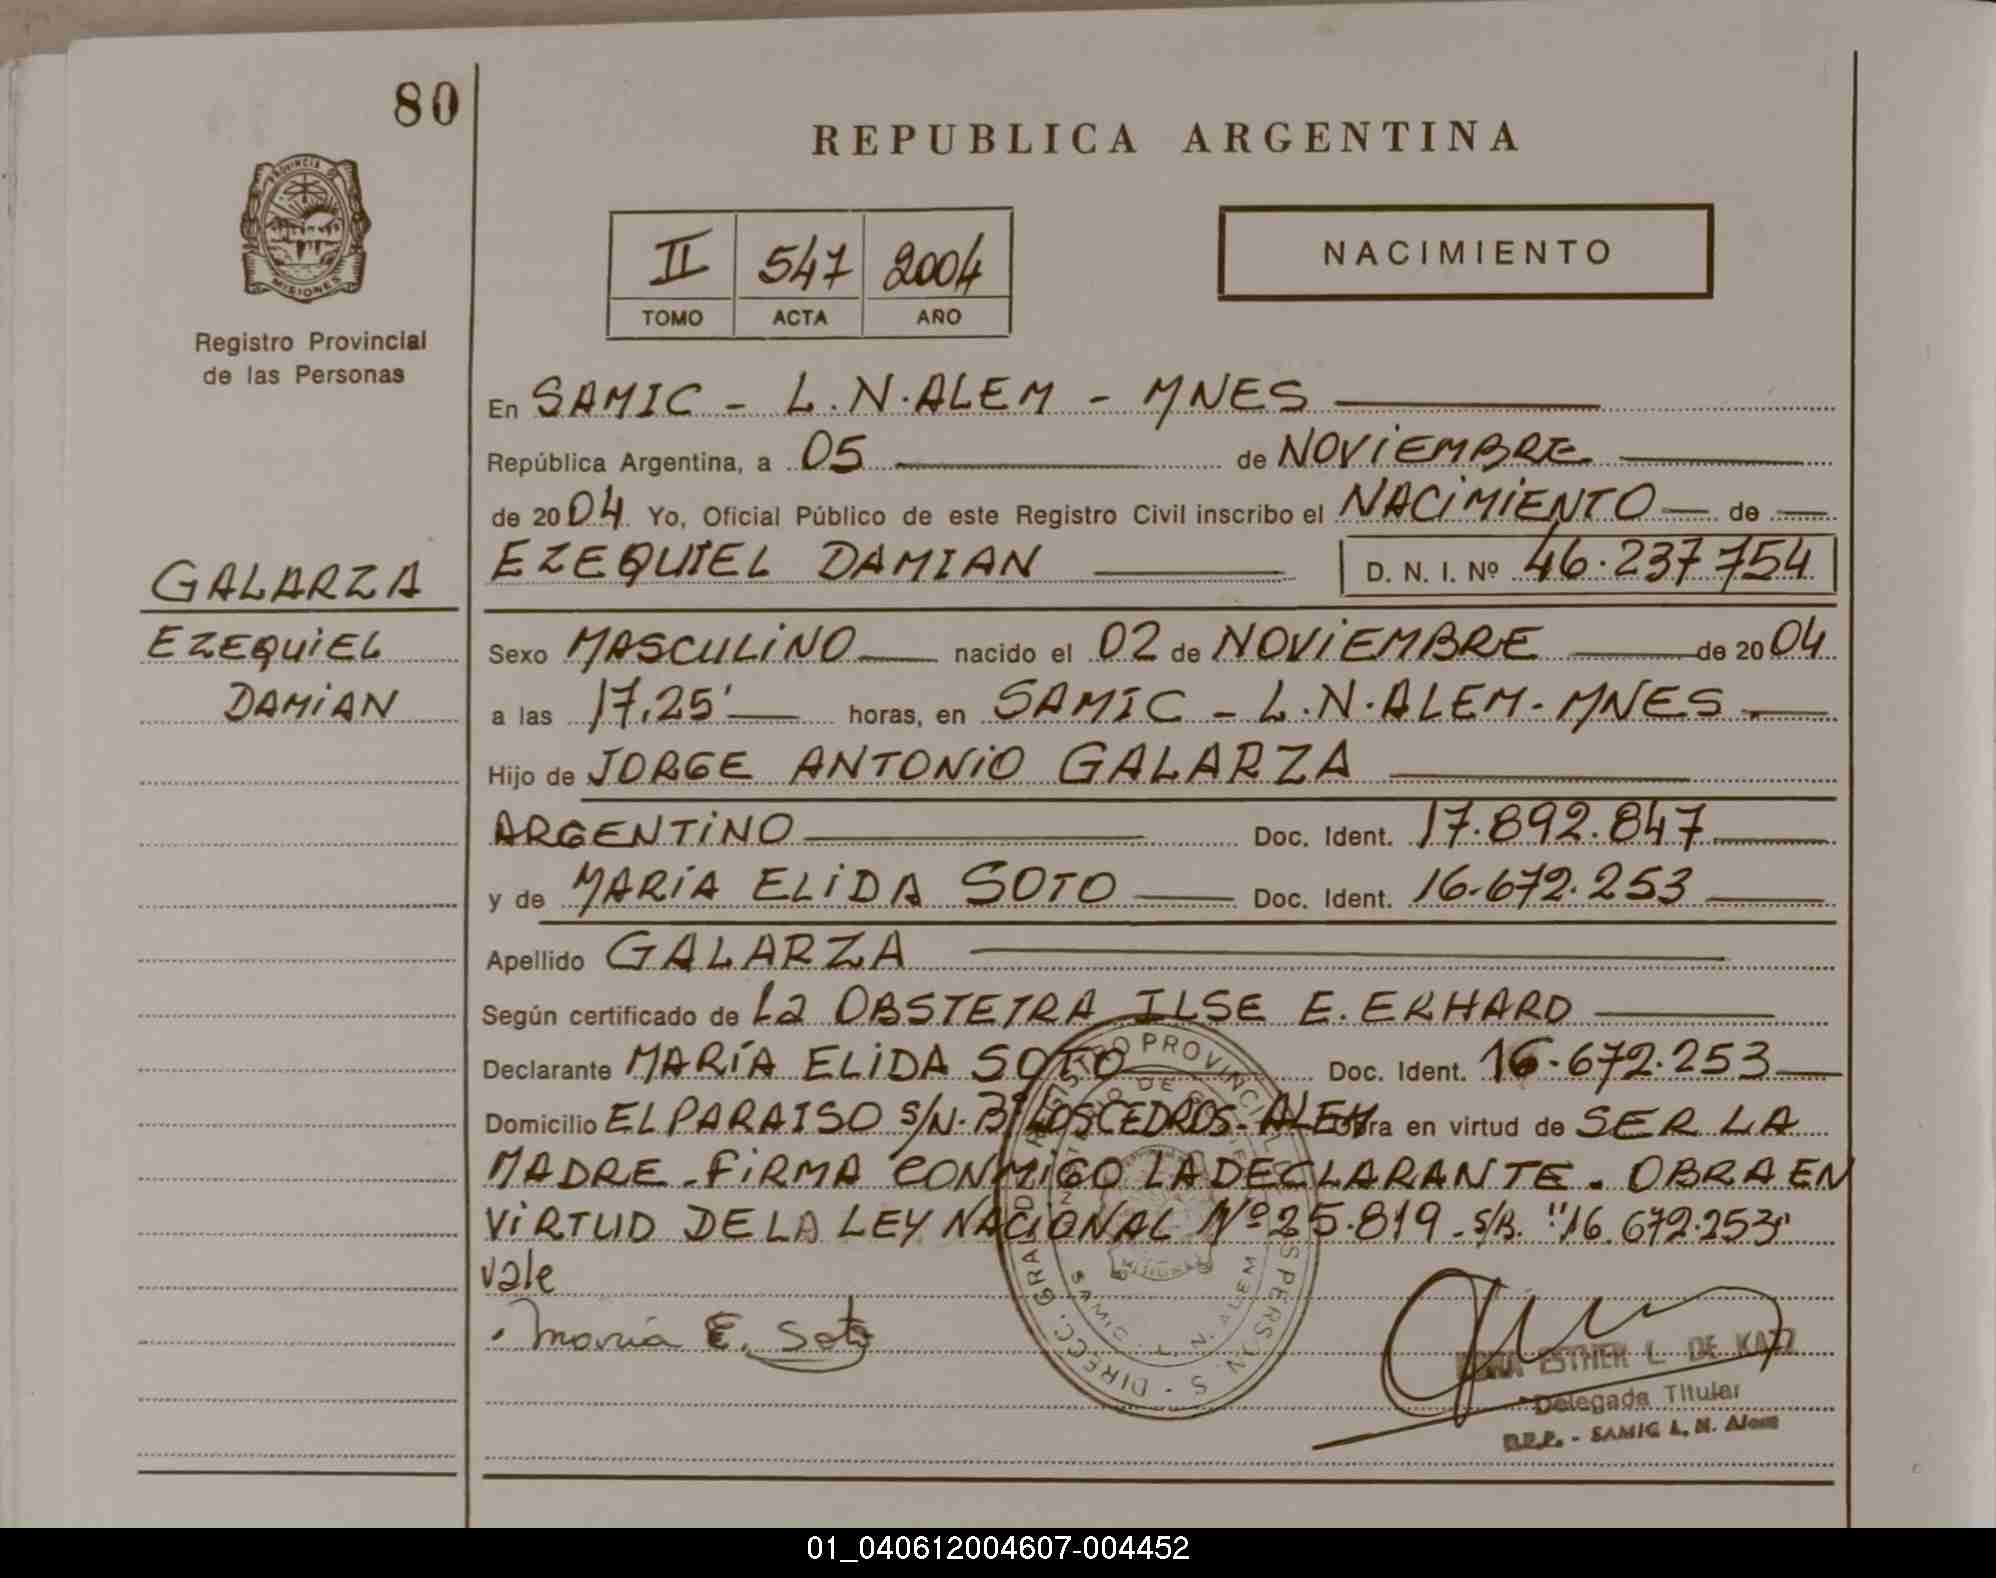 80
REPUBLICA ARGENTINA
PROVINCIA DE
MISIONES
Registro Provincial
de las Personas
II 547 2004
TOMO ACTA AÑO
NACIMIENTO
En SAMIC - L.N.ALEM - MNES
República Argentina, a 05 de NOVIEMBRE
de 2004 Yo, Oficial Público de este Registro Civil inscribo el NACIMIENTO de
EZEQUIEL DAMIAN D. N. I. Nº 46.237.754
GALARZA
EZEQUIEL
DAMIAN
Sexo MASCULINO nacido el 02 de NOVIEMBRE de 2004
a las 17,25' horas, en SAMIC - L.N.ALEM - MNES
Hijo de JORGE ANTONIO GALARZA
ARGENTINO Doc. Ident. 17.892.847
y de MARÍA ELIDA SOTO Doc. Ident. 16.672.253
Apellido GALARZA
Según certificado de La OBSTETRA ILSE E. ERHARD
Declarante MARÍA ELIDA SOTO Doc. Ident. 16.672.253
Domicilio EL PARAISO S/N. Bº LOS CEDROS - ALEM Obra en virtud de SER LA
MADRE - FIRMA CONMIGO LA DECLARANTE. OBRA EN
VIRTUD DE LA LEY NACIONAL Nº 25.819 - S/R. "16.672.253"
vale
María E. Soto
ESTHER L. DE KATZ
Delegada Titular
R.P.P. - SAMIC L. N. Alem
01_040612004607-004452